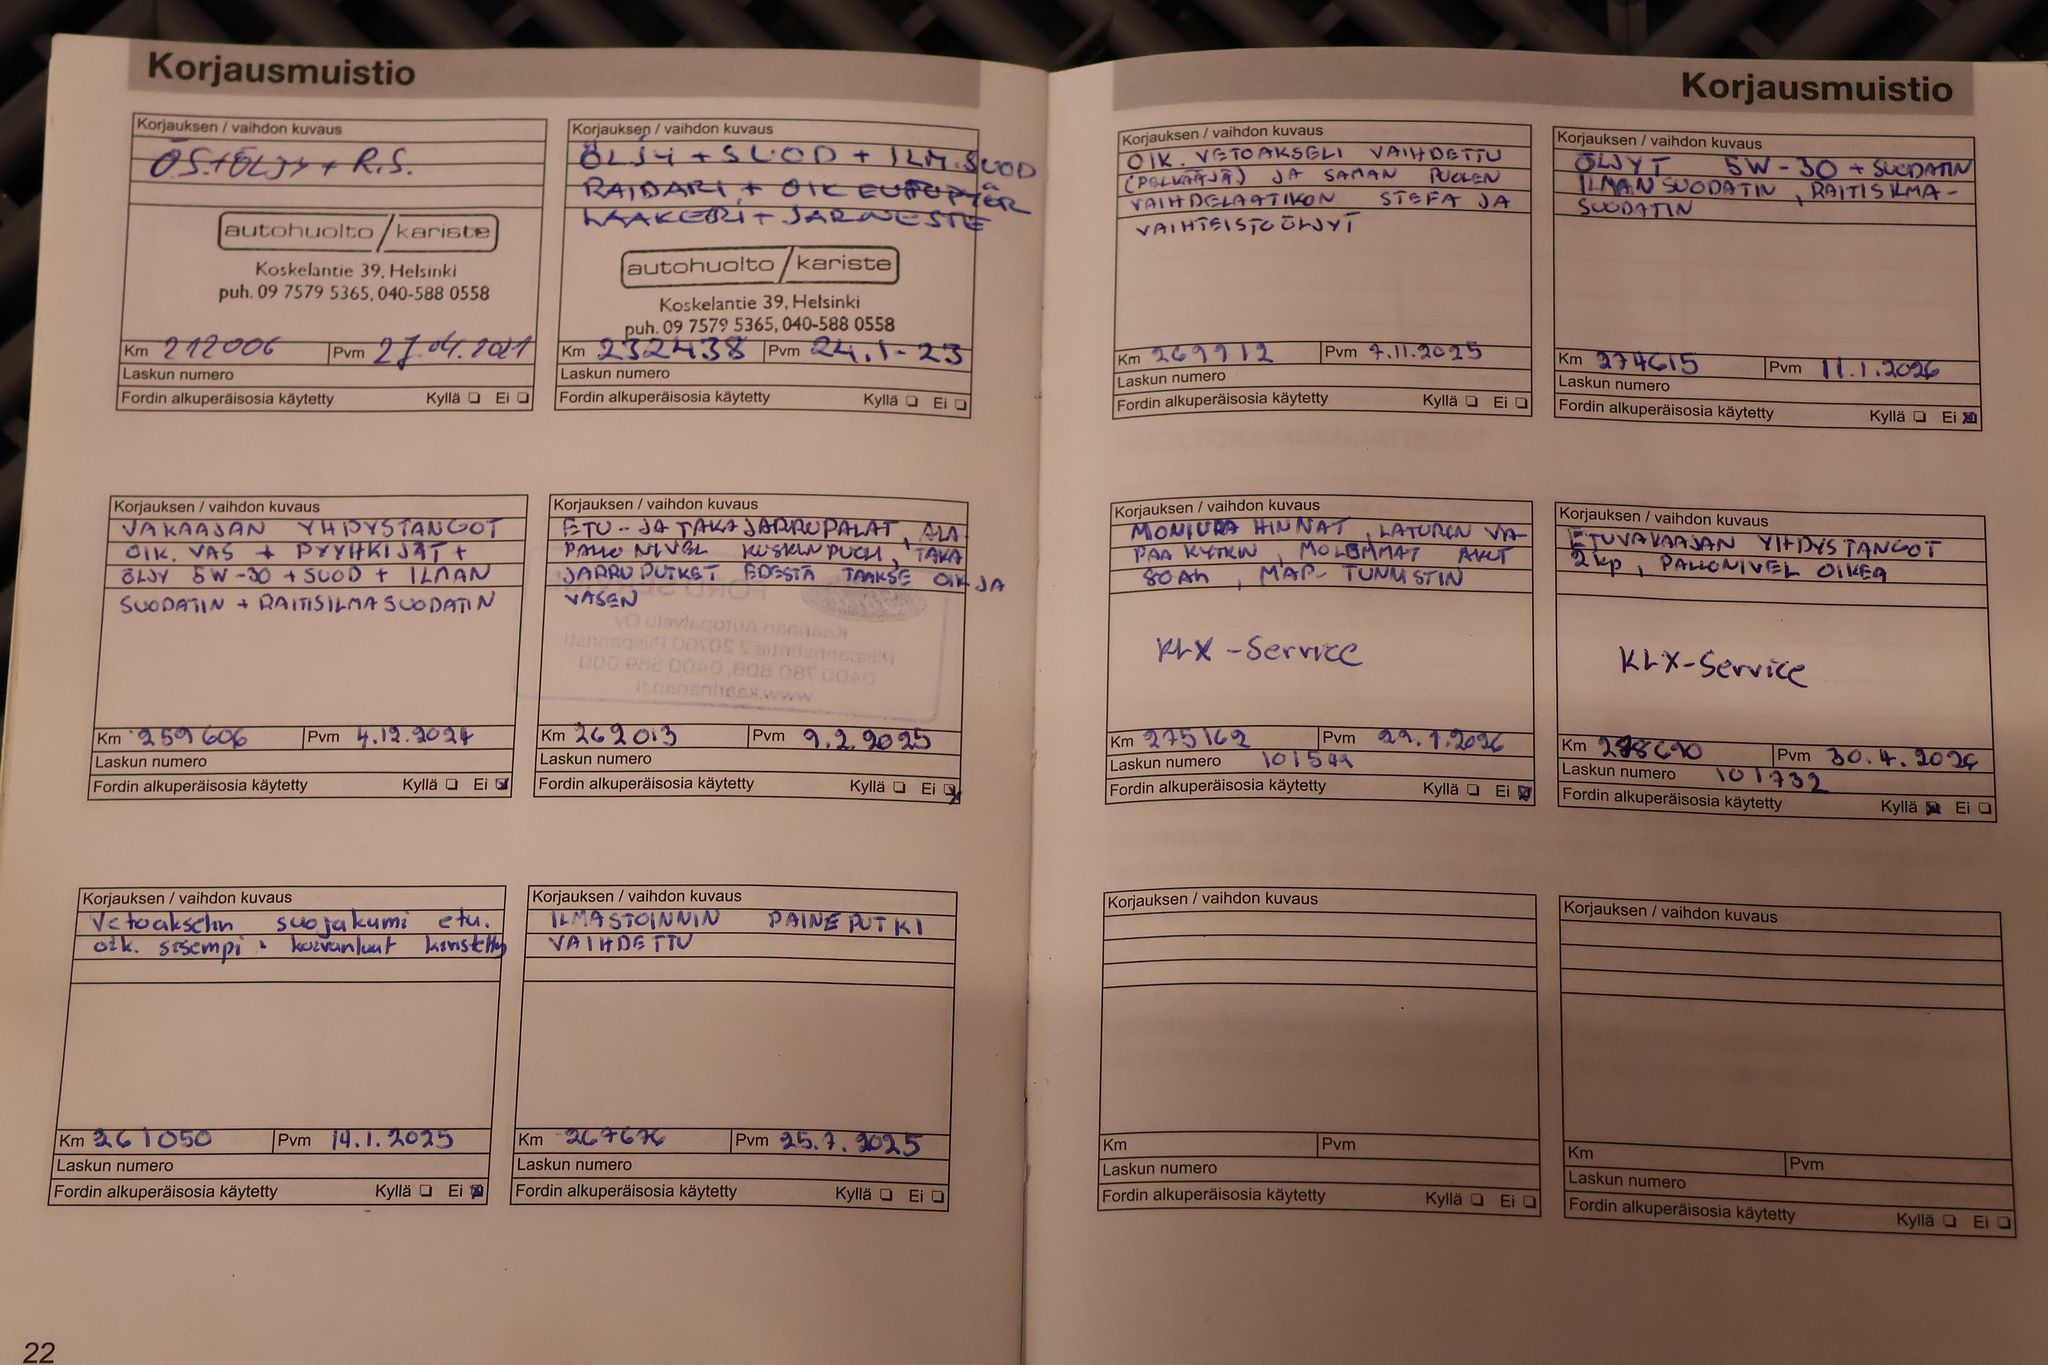 Korjausmuistio
Korjauksen / vaihdon kuvaus
Ö.S.+ÖLJY+ R.S.
autohuolto/kariste
Koskelantie 39, Helsinki
puh. 09 7579 5365, 040-588 0558
Km 212006 Pvm 27.04.2021
Laskun numero
Fordin alkuperäisosia käytetty Kyllä Ei
Korjauksen / vaihdon kuvaus
ÖLJY + SUOD + ILM.SUOD
RAIDARI + OIK
LAAKERI + JARNESTE
autohuolto/kariste
Koskelantie 39, Helsinki
puh. 09 7579 5365, 040-588 0558
Km 232438 Pvm 24.1-23
Laskun numero
Fordin alkuperäisosia käytetty Kyllä Ei
Korjauksen / vaihdon kuvaus
VAKAAJAN YHDYSTANGOT
OIK. VAS + PYYHKIJÄT +
ÖLJY 5W-30 + SUOD + ILMAN
SUODATIN + RAITISILMASUODATIN
Km 259606 Pvm 4.12.2024
Laskun numero
Fordin alkuperäisosia käytetty Kyllä Ei
Korjauksen / vaihdon kuvaus
ETU- JA TAKAJARRUPALAT, ALA-
PALLONIVEL KUSKINPUOLI, TAKA
JARRUPUTKET EDESTÄ TAAKSE OIK JA
VASEN
Km 262013 Pvm 9.2.2025
Laskun numero
Fordin alkuperäisosia käytetty Kyllä Ei
Korjauksen / vaihdon kuvaus
Vetoakselin suojakumi etu.
oik. sisempi. koiranluut kiristetty
Km 261050 Pvm 14.1.2025
Laskun numero
Fordin alkuperäisosia käytetty Kyllä Ei
Korjauksen / vaihdon kuvaus
ILMASTOINNIN PAINEPUTKI
VAIHDETTU
Km 267676 Pvm 25.7.2025
Laskun numero
Fordin alkuperäisosia käytetty Kyllä Ei
22
Korjausmuistio
Korjauksen / vaihdon kuvaus
OIK. VETOAKSELI VAIHDETTU
(PELKÄÄJÄ) JA SAMAN PUOLEN
VAIHDELAATIKON STEFA JA
VAIHTEISTOÖLJYT
Km 269912 Pvm 7.11.2025
Laskun numero
Fordin alkuperäisosia käytetty Kyllä Ei
Korjauksen / vaihdon kuvaus
ÖLJYT 5W-30 + SUODATIN
ILMANSUODATIN, RAITISILMA-
SUODATIN
Km 274615 Pvm 11.1.2026
Laskun numero
Fordin alkuperäisosia käytetty Kyllä Ei
Korjauksen / vaihdon kuvaus
MONIURA HIHNAT, LATURIN VA-
PAAKYTKIN, MOLEMMAT AKUT
80Ah, MAP-TUNNISTIN
KLX-Service
Km 275162 Pvm 29.1.2026
Laskun numero
Fordin alkuperäisosia käytetty Kyllä Ei
Korjauksen / vaihdon kuvaus
ETUVAKAAJAN YHDYSTANGOT
2kp, PALLONIVEL OIKEA
KLX-Service
Km Pvm 30.4.2026
Laskun numero 101732
Fordin alkuperäisosia käytetty Kyllä Ei
Korjauksen / vaihdon kuvaus
Km Pvm
Laskun numero
Fordin alkuperäisosia käytetty Kyllä Ei
Korjauksen / vaihdon kuvaus
Km Pvm
Laskun numero
Fordin alkuperäisosia käytetty Kyllä Ei